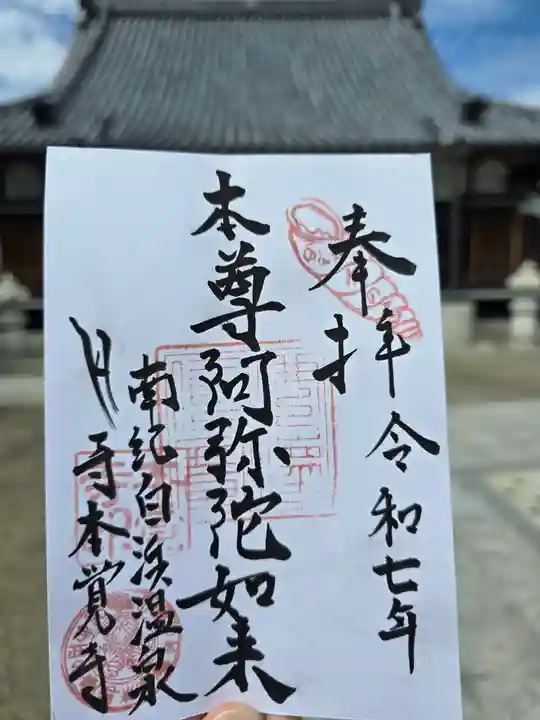 奉拝 令和七年
本尊阿弥陀如来
南紀白浜温泉
貝寺本覚寺